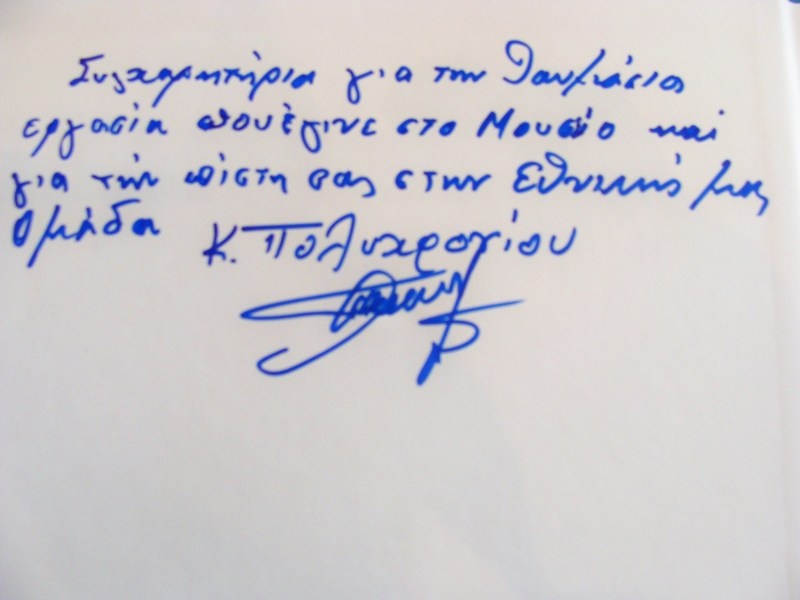 Συγχαρητήρια για την θαυμάσια
εργασία που έγινε στο Μουσείο και
για την πίστη σας στην Εθνική μας
Ομάδα
Κ. Πολυχρονίου